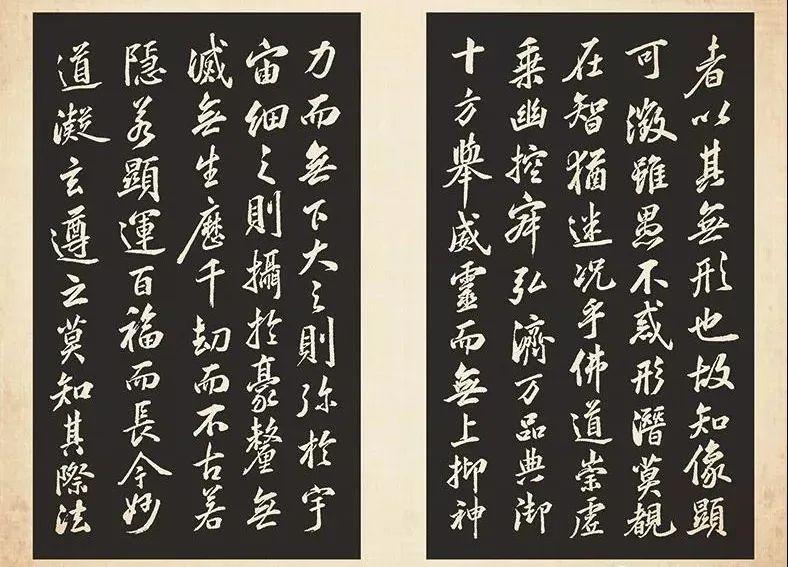 者以其無形也故知像顯
可徵雖愚不惑形潛莫覩
在智猶迷况乎佛道崇虛
乘幽控寂弘濟万品典御
十方舉威靈而無上抑神
力而無下大之則弥於宇
宙細之則攝於豪釐無
滅無生歷千劫而不古若
隱若顯運百福而長今妙
道凝玄遵之莫知其際法